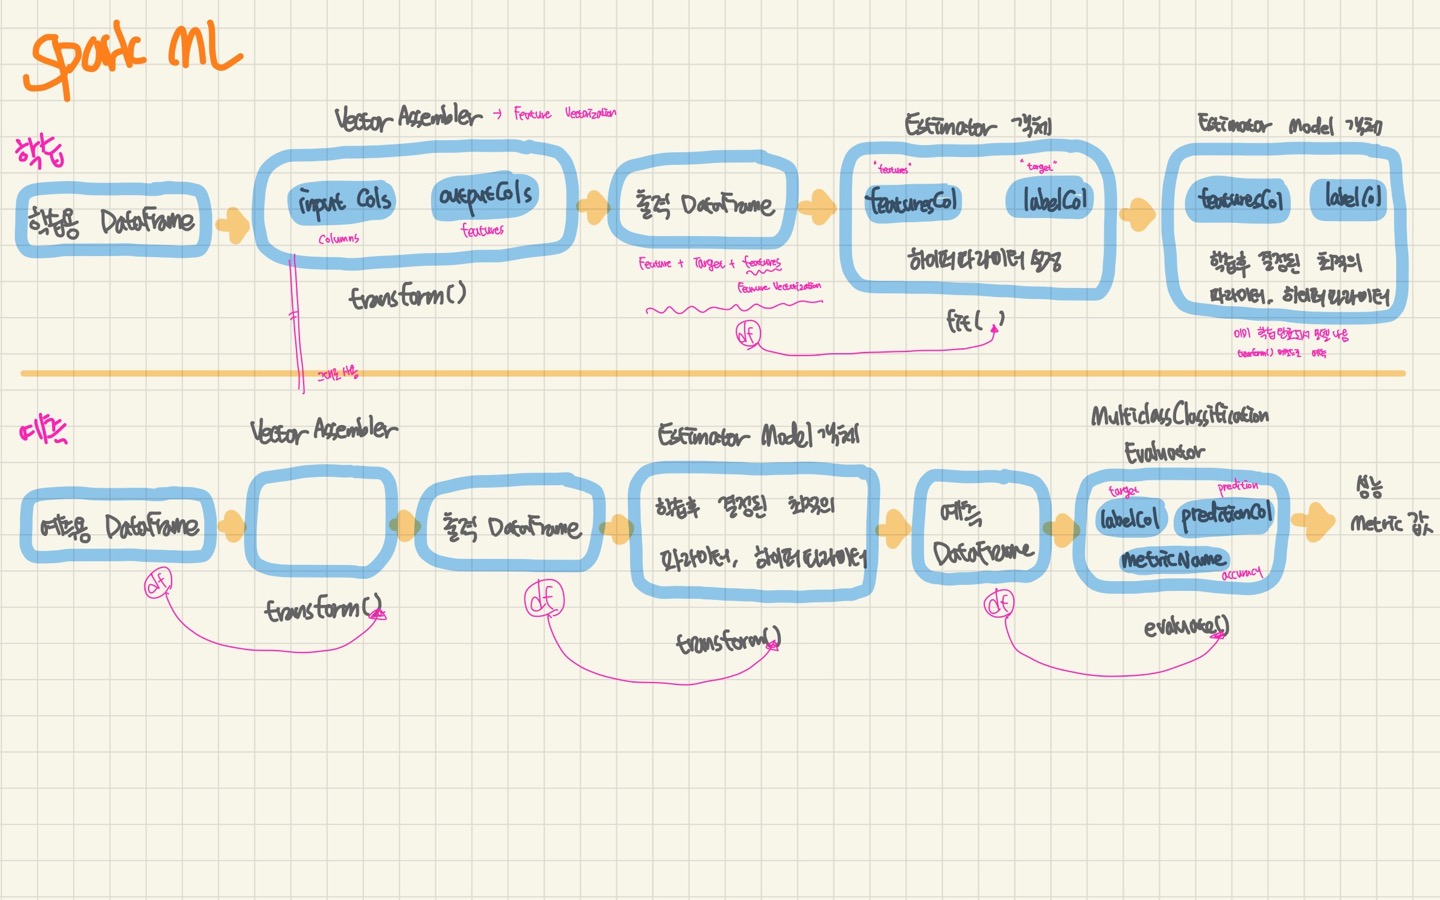 Spark ML
학습
Vector Assembler → Feature Vectorization
학습용 DataFrame
input Cols
outputCols
Columns
features
transform()
그대로 사용
출력 DataFrame
Feature + Target + features
Feature Vectorization
df
Estimator 객체
"features"
"target"
featuresCol
labelCol
하이퍼파라미터 설정
fit( )
Estimator Model 객체
featuresCol
labelCol
학습후 결정된 최적의
파라미터, 하이퍼파라미터
이미 학습 완료되서 모델 나옴
transform() 메소드로 예측
예측
예측용 DataFrame
df
Vector Assembler
transform()
출력 DataFrame
df
Estimator Model 객체
학습후 결정된 최적의
파라미터, 하이퍼파라미터
transform()
예측
DataFrame
df
MulticlassClassification
Evaluator
target
predition
labelCol
preditionCol
metricName
accuracy
evaluate()
성능
Metric 값